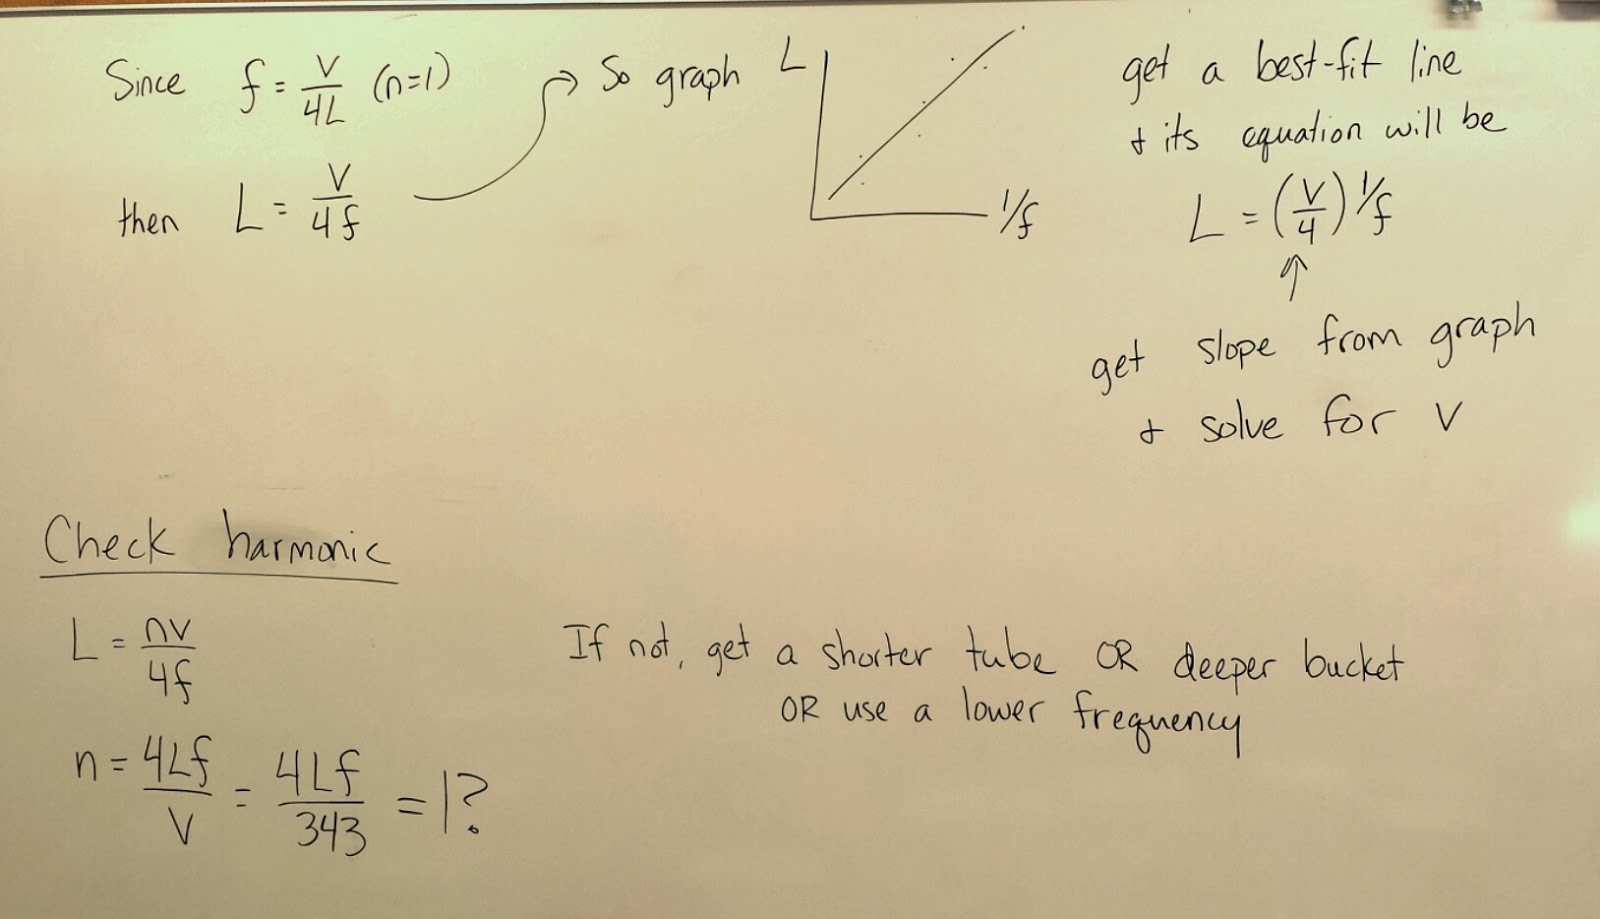 Since f = V/4L (n=1)
then L = V/4f
So graph L
1/f
get a best-fit line
+ its equation will be
L = (V/4) 1/f
get slope from graph
+ solve for V
Check harmonic
L = nv/4f
n = 4Lf/V = 4Lf/343 = 1?
If not, get a shorter tube OR deeper bucket
OR use a lower frequency